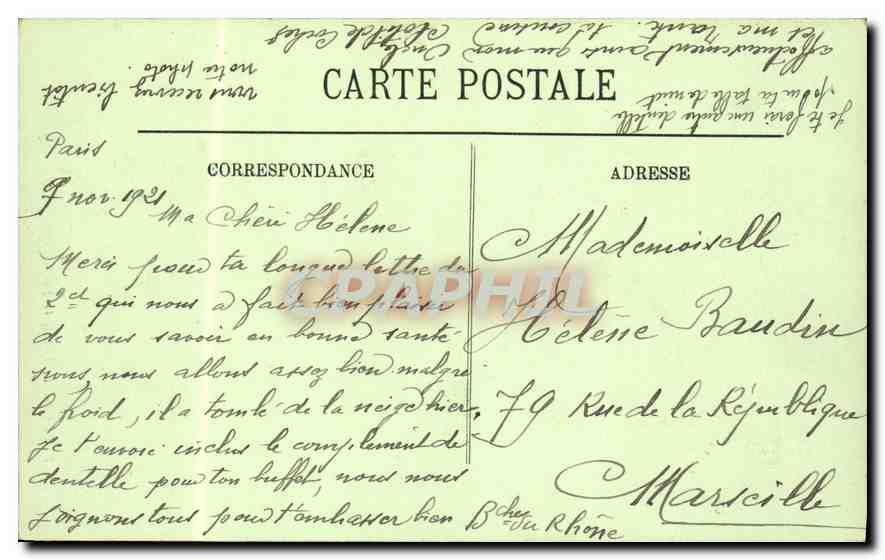 CARTE POSTALE
CORRESPONDANCE
Paris
9 nov. 1921
Ma Chéri Hélène
Merci pour ta longue lettre du
2 ct qui nous a fait bien plaisir
de vous savoir en bonne santé
nous, nous allons assez bien malgré
le froid, il a tombé de la neige hier,
je t'envoie inclus le complément de
dentelle pour ton buffet, nous nous
joignons tous pour t'embrasser bien
affectueusement ainsi que mon Oncle
et ma tante. ta cousine
Clotilde
vous recevrez bientôt
notre photo.
Je te ferai une autre dentelle
pour ta table de nuit
ADRESSE
Mademoiselle
Hélène Baudin
79 Rue de la République
Marseille
Bches du Rhône
CPAPHIL